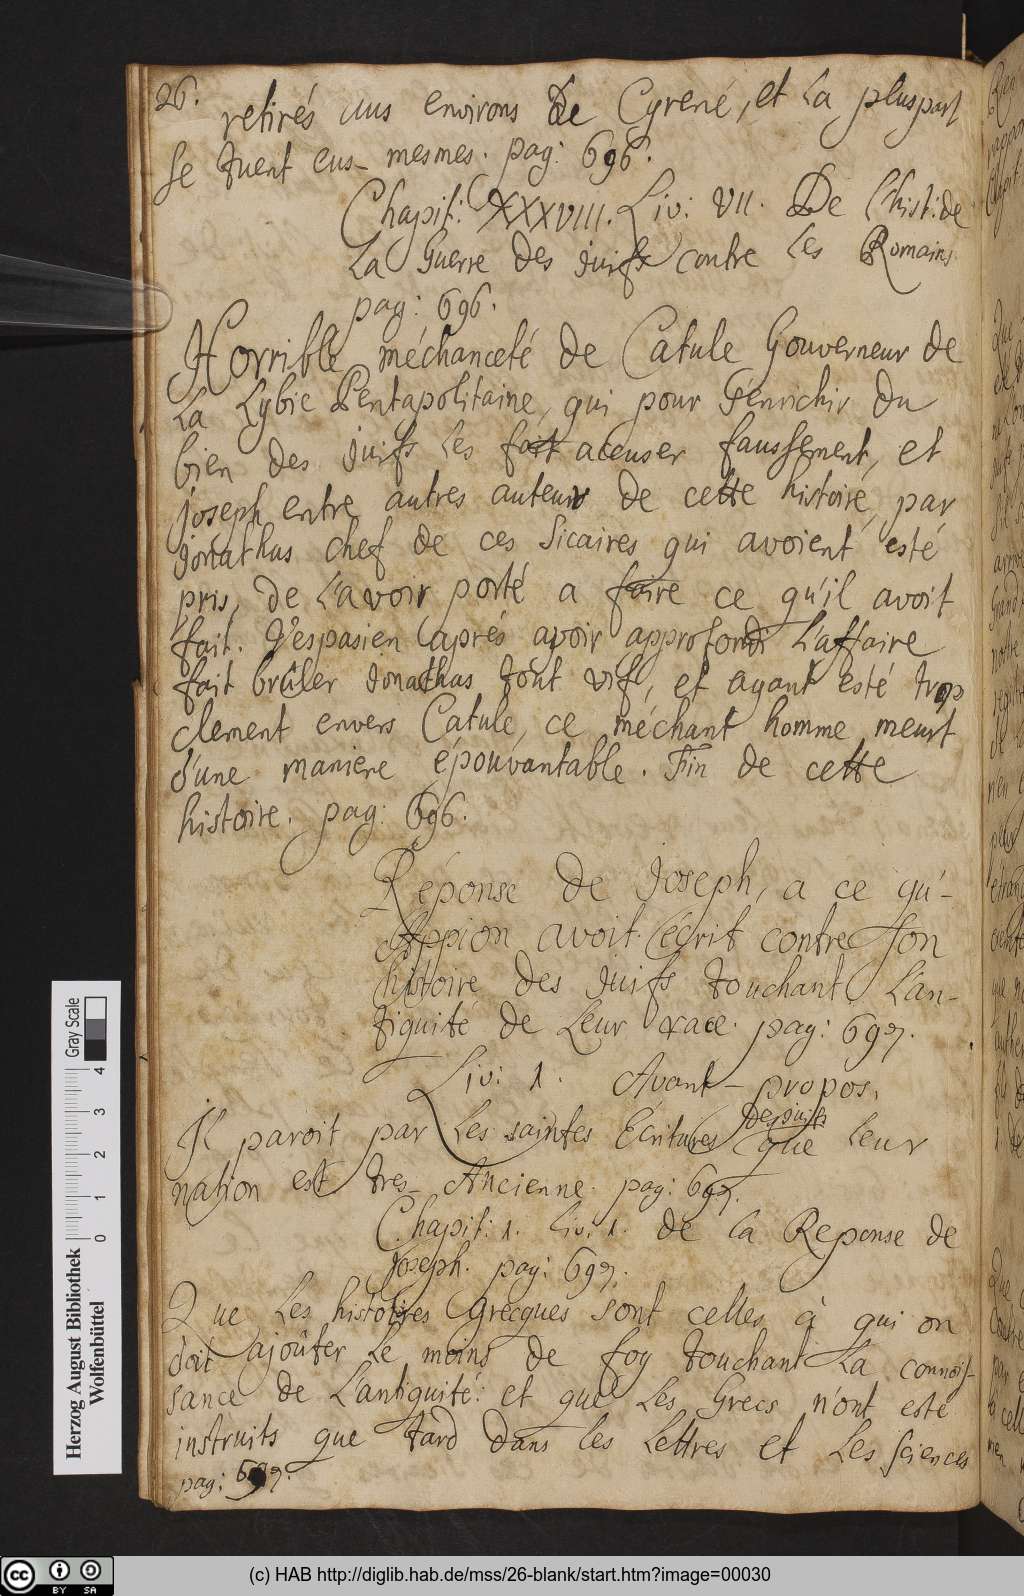 26.
retirés aus environs De Cyrené, et La pluspart
se tuent eus-mesmes. pag: 696.
Chapit: XXXVIII. Liv: VII. De L'hist: de
La Guerre des Juifs contre Les Romains.
pag: 696.
Horrible méchanceté de Catule Gouverneur de
La Lybie Pentapolitaine, qui pour s'enrichir du
bien des Juifs les fait accuser faussement, et
Joseph entre autres auteur de cette histoire, par
Jonathas chef de ces Sicaires qui avoient esté
pris, de L'avoir porté a faire ce qu'il avoit
fait. Vespasien aprés avoir approfondi L'affaire
fait brûler Jonathas tout vif, et ayant esté trop
clement envers Catule, ce méchant homme meurt
d'une maniere épouvantable. Fin de cette
histoire. pag: 696.
Réponse de Joseph, a ce qu'-
Appion avoit écrit contre son
histoire des Juifs touchant L'an-
tiquité de Leur race. pag: 697.
Liv: 1. Avant-propos.
des Juifs
Il paroit par Les saintes Ecritures que leur
nation est tres-Ancienne. pag: 697.
Chapit: 1. Liv. 1. de la Reponse de
Joseph. pag: 697.
Que Les histoires Grecques sont celles à qui on
doit ajoûter Le moins de foy touchant La connoiſ-
sance de L'antiquité: et que Les Grecs n'ont esté
instruits que tard dans les Lettres et Les Sciences
pag: 697.
Gray Scale
0 1 2 3 4
Herzog August Bibliothek
Wolfenbüttel
(c) HAB http://diglib.hab.de/mss/26-blank/start.htm?image=00030
cc BY SA